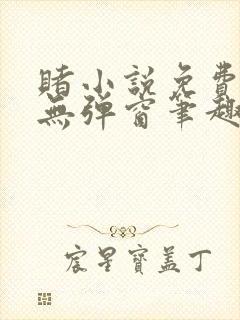 賭小説免費
無彈窗筆趣
宸星寶蓋丁